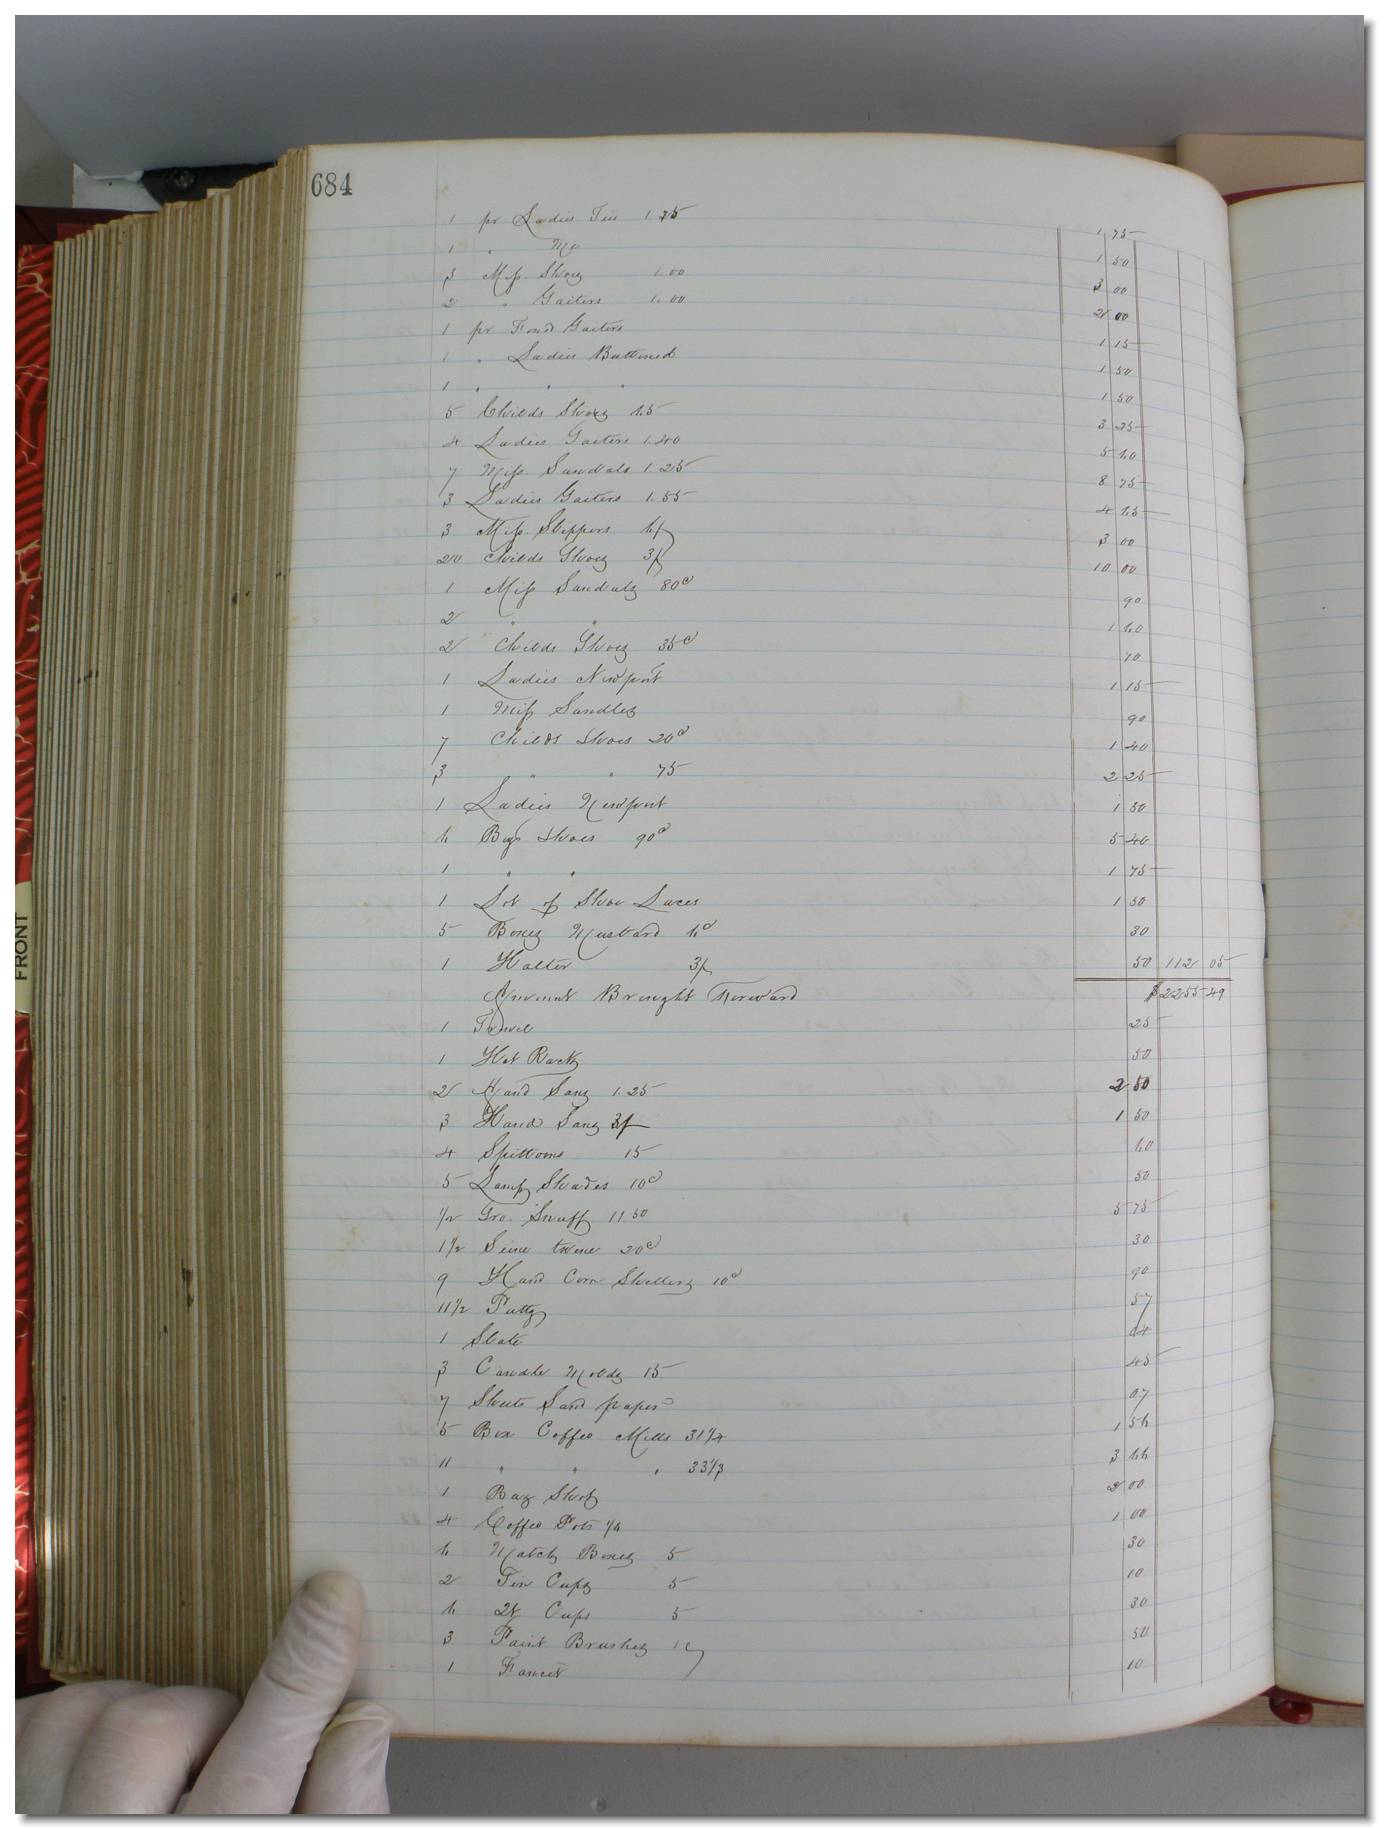 684
1 pr Ladies Ties 1.75 1 75
1 " 1 50
3 Miss Shoes 1.00 3 00
2 " Gaiters 1.00 2 00
1 pr Gaiters 1 15
1 " Ladies Buttoned 1 50
1 " " " 1 50
5 Childs Shoes 65 3 25
4 Ladies Gaiters 1.40 5 60
7 Miss Sandals 1.25 8 75
3 Ladies Gaiters 1.55 4 65
3 Miss Slippers 6/ 3 00
20 Childs Shoes 3/ 10 00
1 Miss Sandals 80c 90
2 " " 1 60
2 Childs Shoes 35c 70
1 Ladies Newport 1 15
1 Miss Sandles 90
7 Childs Shoes 20c 1 40
3 " " 75 2 25
1 Ladies Newport 1 50
6 Boys Shoes 90c 5 40
1 " " 1 75
1 Lot of Shoe Laces 1 50
5 Boxes Mustard 6c 30
1 Halter 3/ 50 112 05
Amount Brought Forward $2255 49
1 25
1 Hat Rack 50
2 Hand Saws 1.25 2 50
3 Hand Saws 3/ 1 50
4 Spittoons 15 60
5 Lamp Shades 10c 50
1/2 Gro. Snuff 11.50 5 75
1 1/2 Seine twine 20c 30
9 Hand Corn Shellers 10c 90
11 1/2 Putty 57
1 Slate 04
3 Candle Molds 15 45
7 Sheets Sand paper 07
5 Box Coffee Mills 31 1/4 1 56
11 " " " 33 1/3 3 66
1 Bag Shot 2 00
4 Coffee Pots 1 00
6 Match Boxes 5 30
2 Tin Cups 5 10
6 Cups 5 30
3 Paint Brushes 50
1 Faucet 10
FRONT